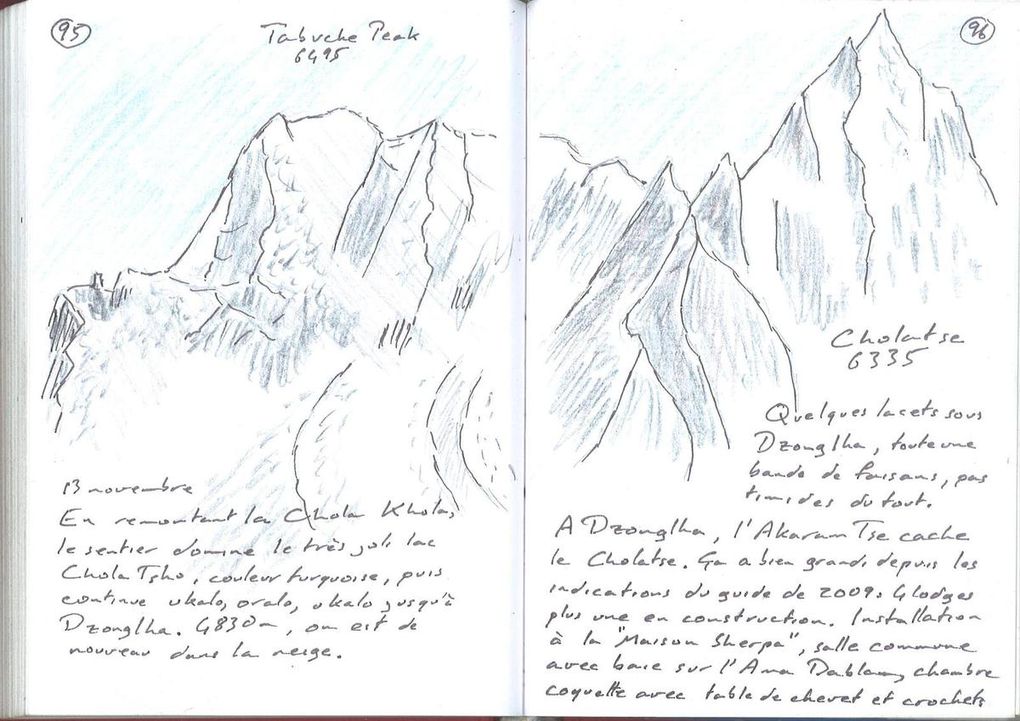 95
Tabuche Peak
6495
13 novembre
En remontant la Chola Khola,
le sentier domine le très joli lac
Chola Tsho, couleur turquoise, puis
continue ukalo, oralo, ukalo jusqu'à
Dzonglha. 4830m, on est de
nouveau dans la neige.
96
Cholatse
6335
Quelques lacets sous
Dzonglha, toute une
bande de faisans, pas
timides du tout.
A Dzonglha, l'Akaram Tse cache
le Cholatse. Ça a bien grandi depuis les
indications du guide de 2009: 4 lodges
plus une en construction. Installation
à la "Maison Sherpa", salle commune
avec baie sur l'Ama Dablam, chambre
coquette avec table de chevet et crochets